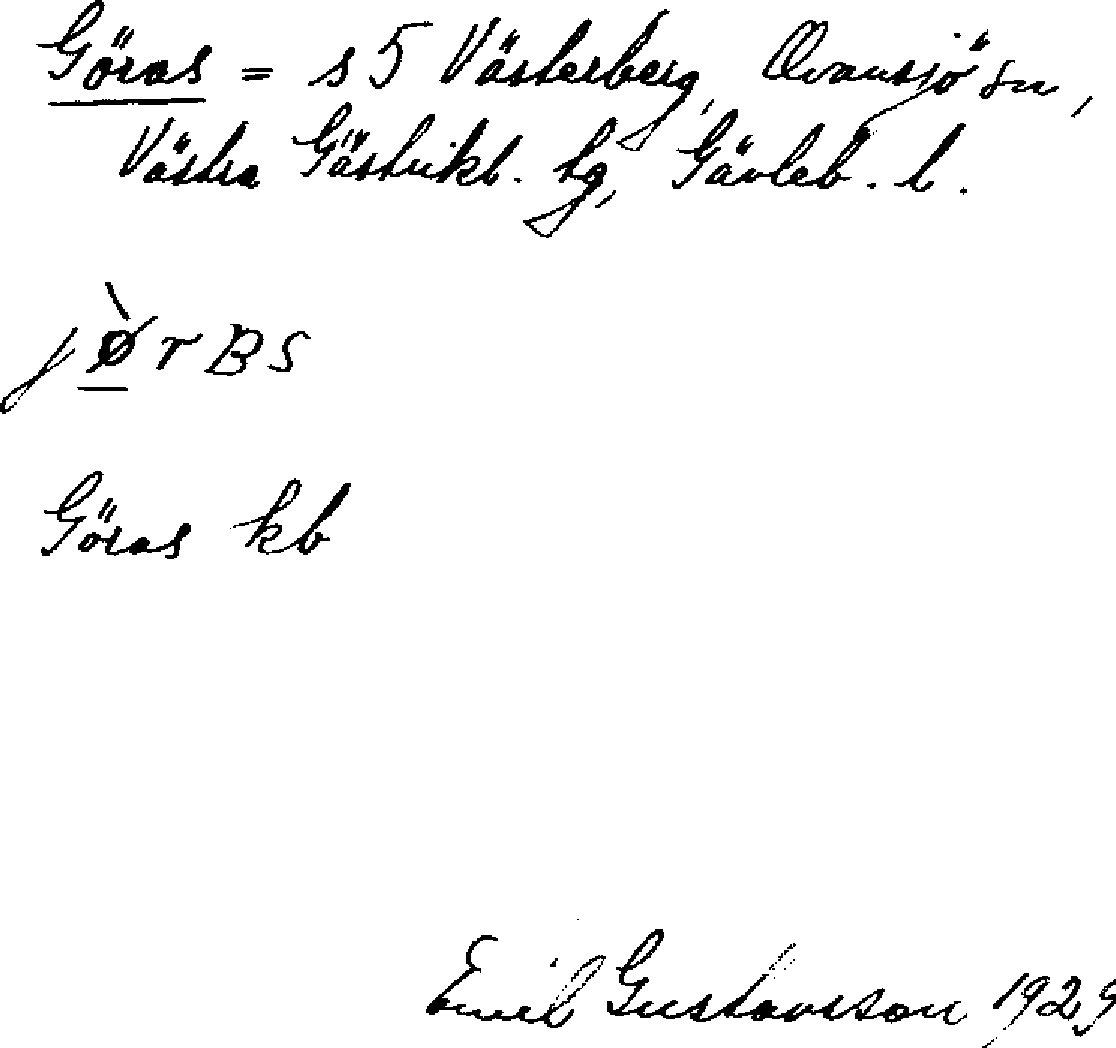 Göras = s 5 Västerberg, Ovansjö sn,
Västra Gästrikl. tg, Gävleb. l.
jø̀rBs
Göras kb
Emil Gustavsson 1929